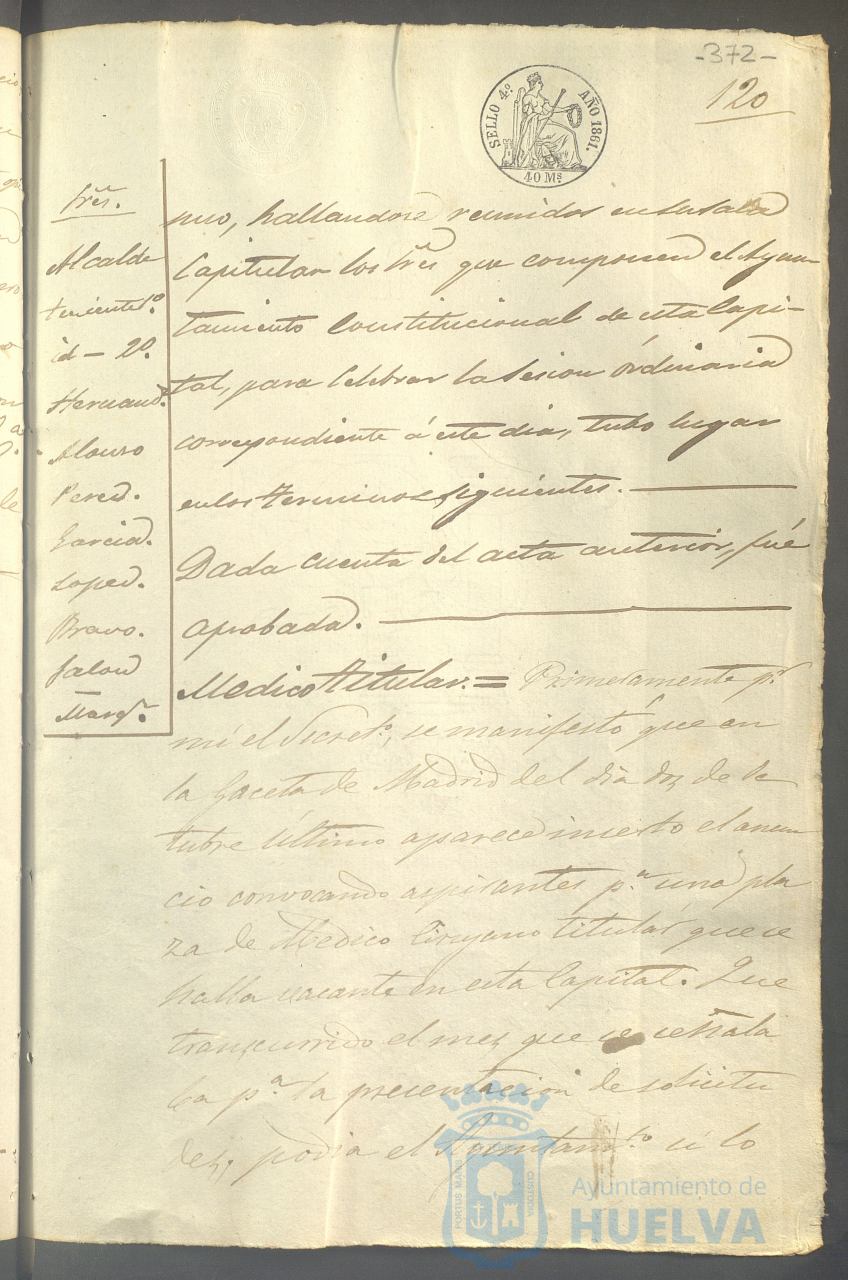 -372-
120
SELLO 4.º AÑO 1861.
40 Ms
Sres.
Alcalde
teniente 1º.
id - 2º.
Hernand.
Alonso
Perez.
Garcia.
Lopez.
Bravo.
Jalon
Marqz.
nuo, hallandose reunidos en su sala
Capitular los Sres que componen el Ayun-
tamiento Constitucional de esta Capi-
tal, para Celebrar la Sesion Ordinaria
correspondiente á este dia, tubo lugar
en los terminos siguientes.
Dada cuenta del acta anterior, fué
aprobada.
Medico titular. = Primeramente pr.
mi el Secreto., se manifestó que en
la Gaceta de Madrid del dia dos de Oc
tubre último aparece inserto el anun
cio convocando aspirantes pa. una pla
za de Medico Cirujano titular que se
halla vacante en esta Capital. Que
transcurrido el mes que se señala
ba pa. la presentacion de solicitu
des, podia el Ayuntamto. si lo
PORTUS MARIS
CUSTODIA
Ayuntamiento de
HUELVA